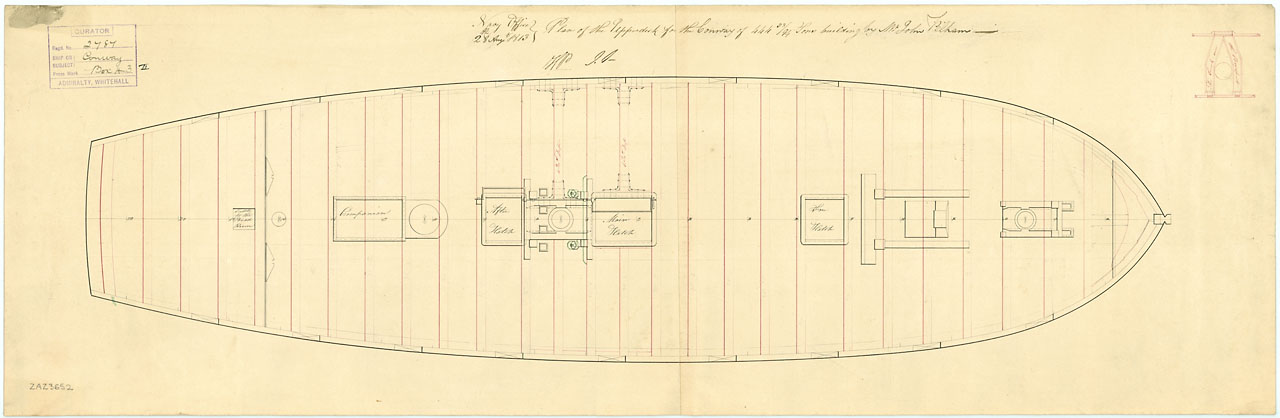 CURATOR
Regd No. 2787
SHIP OR SUBJECT: Conway
Box
ADMIRALTY, WHITEHALL
Navy Office
28 Augt 1813
Plan of the Upperdeck for the Conway of 444 Tons building by Mr John Pelham
Companion
After Hatch
Main Hatch
Fore Hatch
ZAZ3652